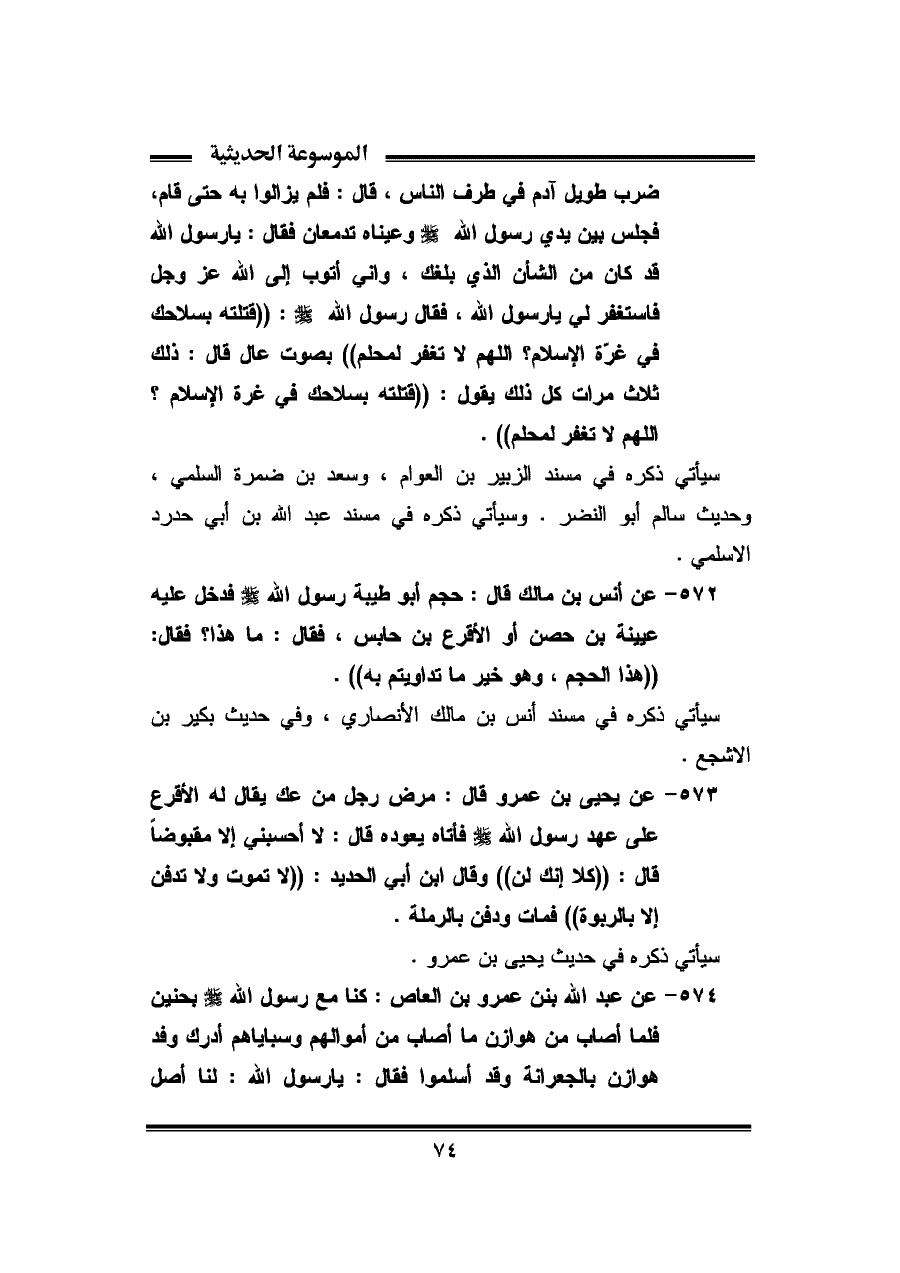 الموسوعة الحديثية
ضرب طويل آدم في طرف الناس ، قال : فلم يزالوا به حتى قام،
فجلس بين يدي رسول الله ﷺ وعيناه تدمعان فقال : يارسول الله
قد كان من الشأن الذي بلغك ، واني أتوب إلى الله عز وجل
فاستغفر لي يارسول الله ، فقال رسول الله ﷺ : ((قتلته بسلاحك
في غرّة الإسلام؟ اللهم لا تغفر لمحلم)) بصوت عال قال : ذلك
ثلاث مرات كل ذلك يقول : ((قتلته بسلاحك في غرة الإسلام ؟
اللهم لا تغفر لمحلم)) .
سيأتي ذكره في مسند الزبير بن العوام ، وسعد بن ضمرة السلمي ،
وحديث سالم أبو النضر . وسيأتي ذكره في مسند عبد الله بن أبي حدرد
الاسلمي .
٥٧٢- عن أنس بن مالك قال : حجم أبو طيبة رسول الله ﷺ فدخل عليه
عيينة بن حصن أو الأقرع بن حابس ، فقال : ما هذا؟ فقال:
((هذا الحجم ، وهو خير ما تداويتم به)) .
سيأتي ذكره في مسند أنس بن مالك الأنصاري ، وفي حديث بكير بن
الاشجع .
٥٧٣- عن يحيى بن عمرو قال : مرض رجل من عك يقال له الأقرع
على عهد رسول الله ﷺ فأتاه يعوده قال : لا أحسبني إلا مقبوضاً
قال : ((كلا إنك لن)) وقال ابن أبي الحديد : ((لا تموت ولا تدفن
إلا بالربوة)) فمات ودفن بالرملة .
سيأتي ذكره في حديث يحيى بن عمرو .
٥٧٤- عن عبد الله بنن عمرو بن العاص : كنا مع رسول الله ﷺ بحنين
فلما أصاب من هوازن ما أصاب من أموالهم وسباياهم أدرك وفد
هوازن بالجعرانة وقد أسلموا فقال : يارسول الله : لنا أصل
٧٤